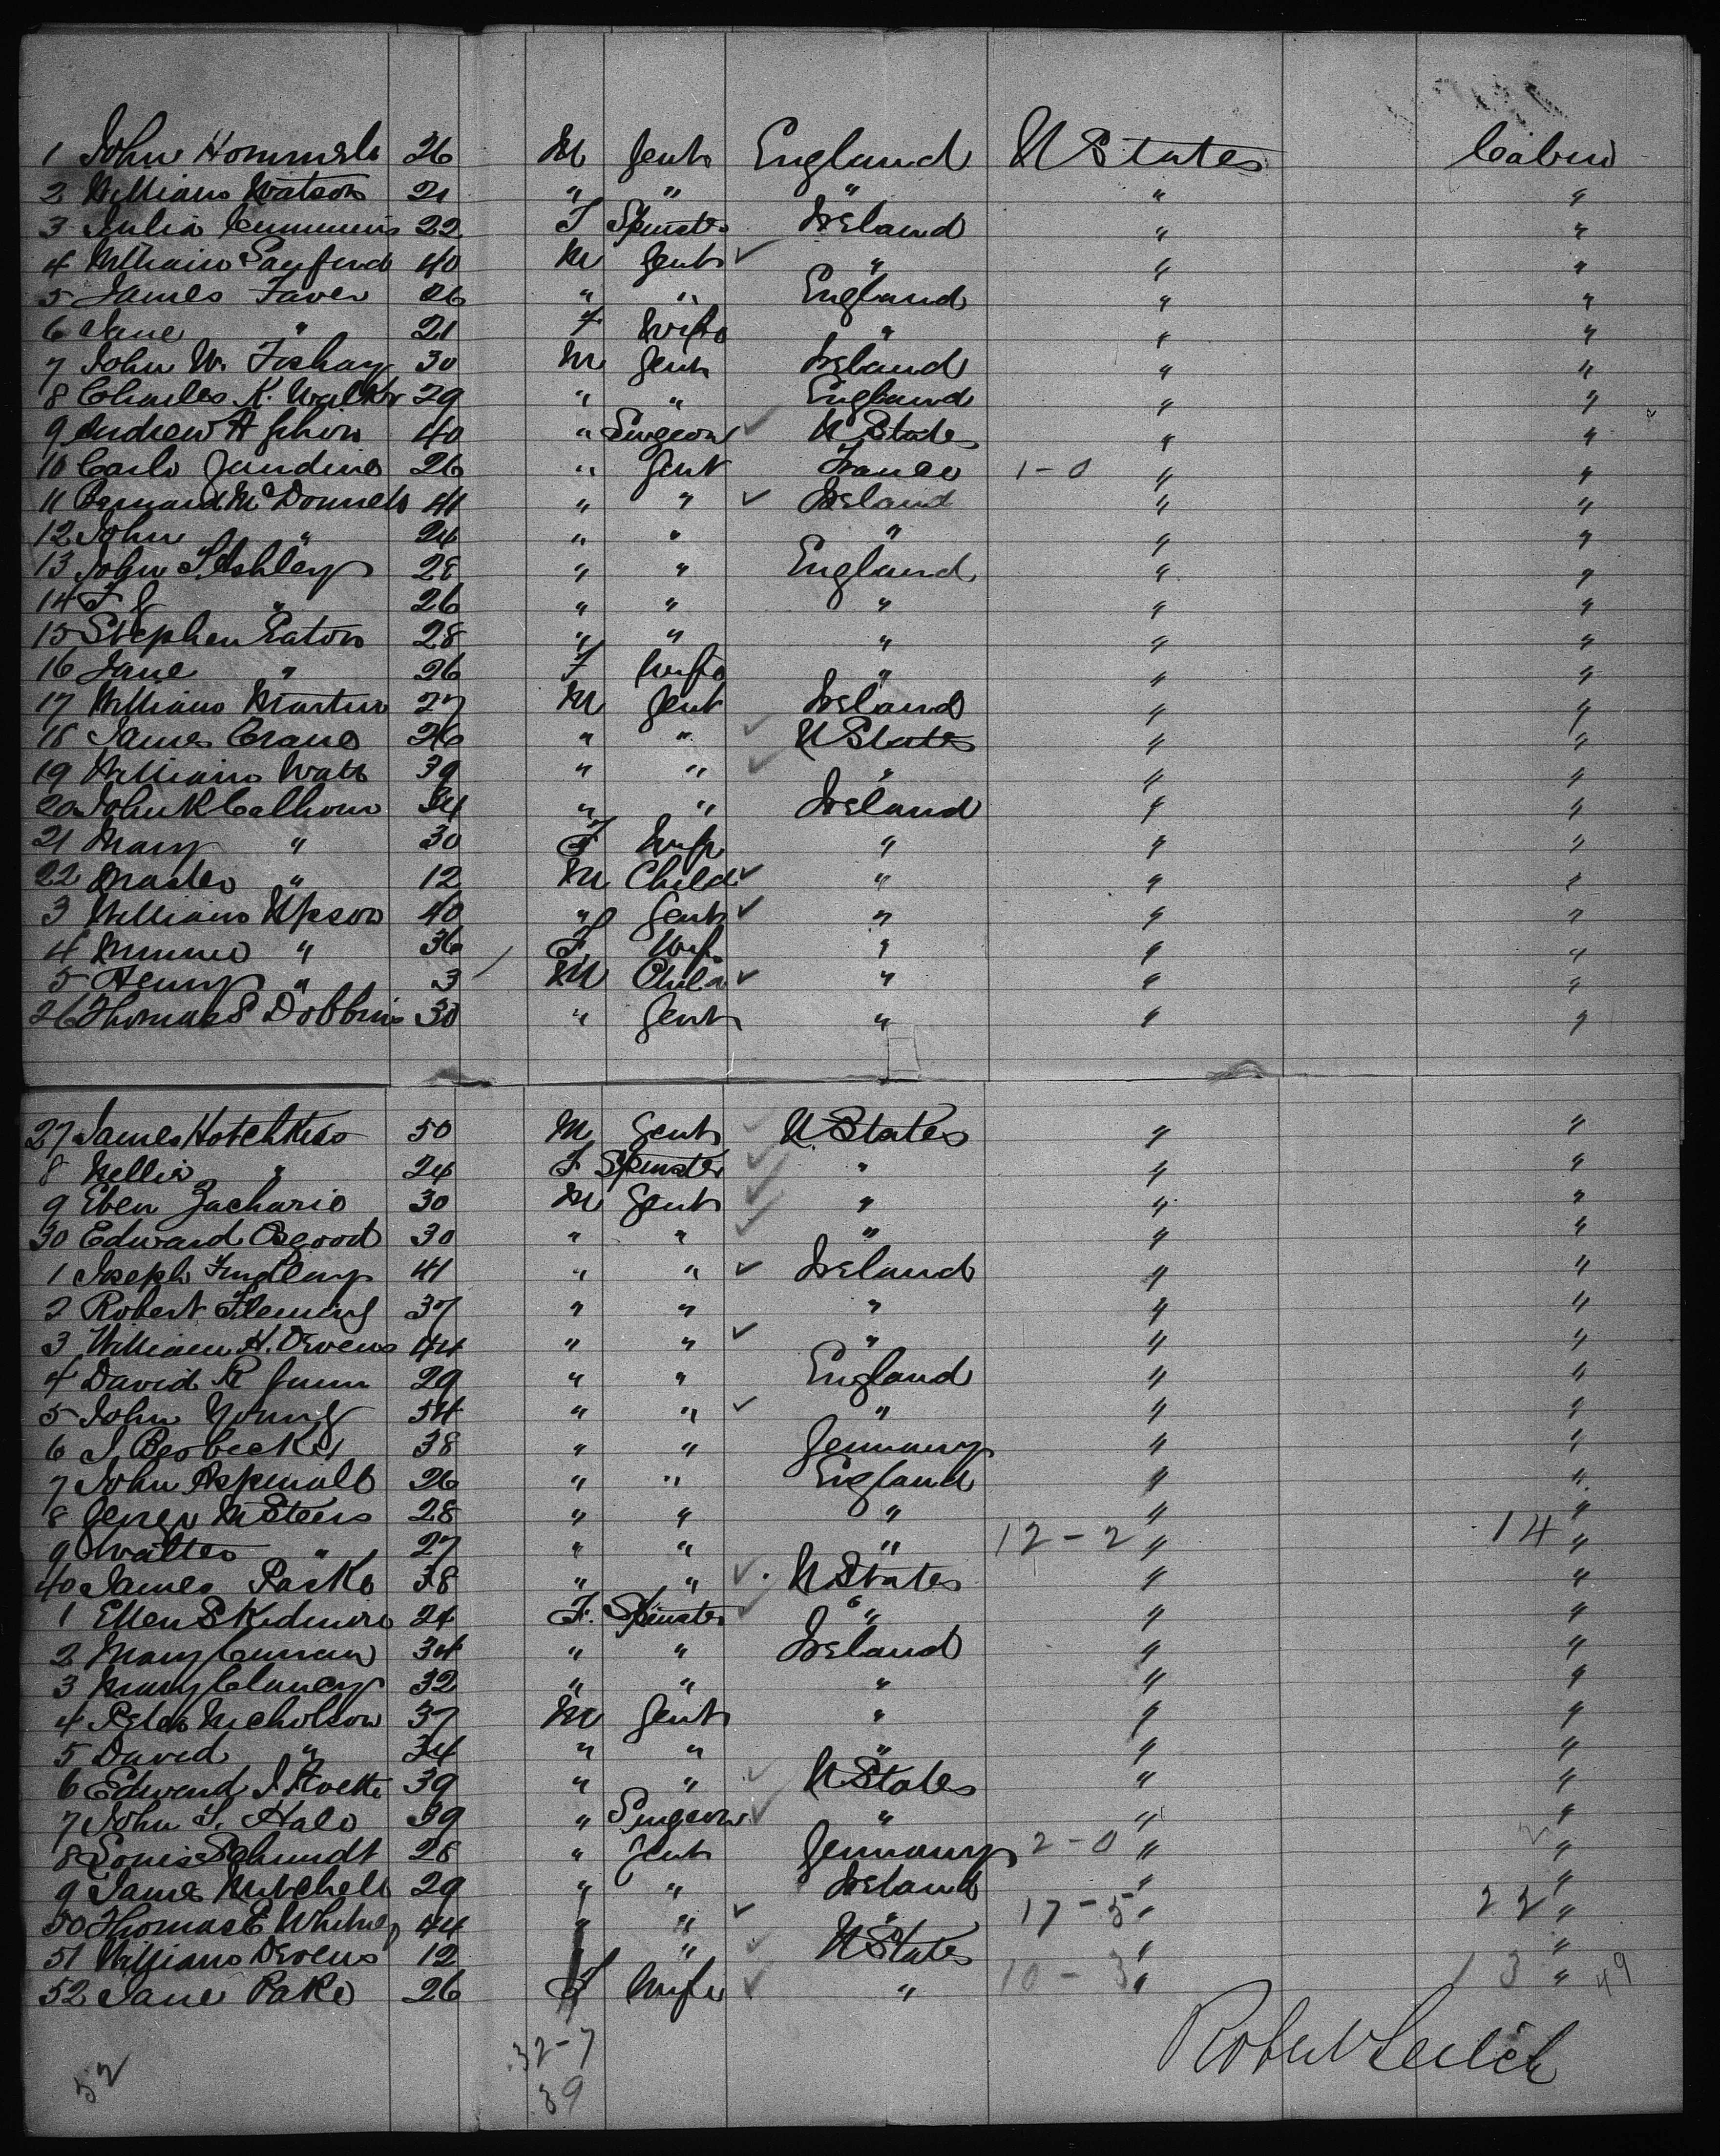 1 John Hommels 26 M Gent England U States Cabin
2 William Watson 21 " " " " "
3 Julia Cummins 22 F Spinster Ireland " "
4 William Sayford 40 M Gent ✓ " " "
5 James Faver 26 " " England " "
6 Jane " 21 F Wife " " "
7 John W. Foshay 30 M Gent Ireland " "
8 Charles K. Walker 29 " " England " "
9 Andrew H 40 " Surgeon ✓ U States " "
10 Carlo Jundino 26 " Gent France 1-0 " "
11 Bernard McDonnell 41 " " ✓ Ireland " "
12 John " 24 " " " " "
13 John S. Ashley 28 " " England " "
14 F G " 26 " " " " "
15 Stephen Eaton 28 " " " " "
16 Jane " 26 F Wife " " "
17 William Martin 27 M Gent Ireland " "
18 James Crane 26 " " ✓ U States " "
19 William Watt 39 " " ✓ " " "
20 John K Calhoun 34 " " Ireland " "
21 Mary " 30 F Wife " " "
22 Master " 12 M Child ✓ " " "
3 William Upson 40 " Gent ✓ " " "
4 Minnie " 36 F Wife " " "
5 Henry " 3 M Child ✓ " " "
26 Thomas S Dobbins 30 " Gent " " "
27 James Hotchkiss 50 M Gent ✓ U States " "
8 Nellie " 24 F Spinster ✓ " " "
9 Eben Zacharie 30 M Gent ✓ " " "
30 Edward Osgood 30 " " ✓ " " "
1 Joseph Findlay 41 " " ✓ Ireland " "
2 Robert Fleming 37 " " " " "
3 William H. Owens 44 " " ✓ " " "
4 David R Gunn 29 " " England " "
5 John Young 54 " " ✓ " " "
6 J. 38 " " Germany " "
7 John Aspinall 26 " " England " "
8 George W Steers 28 " " " " "
9 Walter " 27 " " " 12-2 " 14 "
40 James Parke 38 " " ✓ U States " "
1 Ellen Skidmore 24 F. Spinster ✓ " " "
2 Mary Curran 34 " " Ireland " "
3 Mary Clancy 32 " " " " "
4 Peter Nicholson 37 M Gent " " "
5 David " 34 " " " " "
6 Edward J 39 " " ✓ U States " "
7 John S. Hale 39 " Surgeon ✓ " " "
8 Louis Schmidt 28 " Gent Germany 2-0 " 2 "
9 James Mitchell 29 " " Ireland " "
50 Thomas E Whitney 44 " " ✓ " 17-5 " 22 "
51 William Owens 12 " " ✓ U States " "
52 Jane Parke 26 F Wife ✓ " 10-3 " 13 " 49
Robert Leitch
32-7
52
39